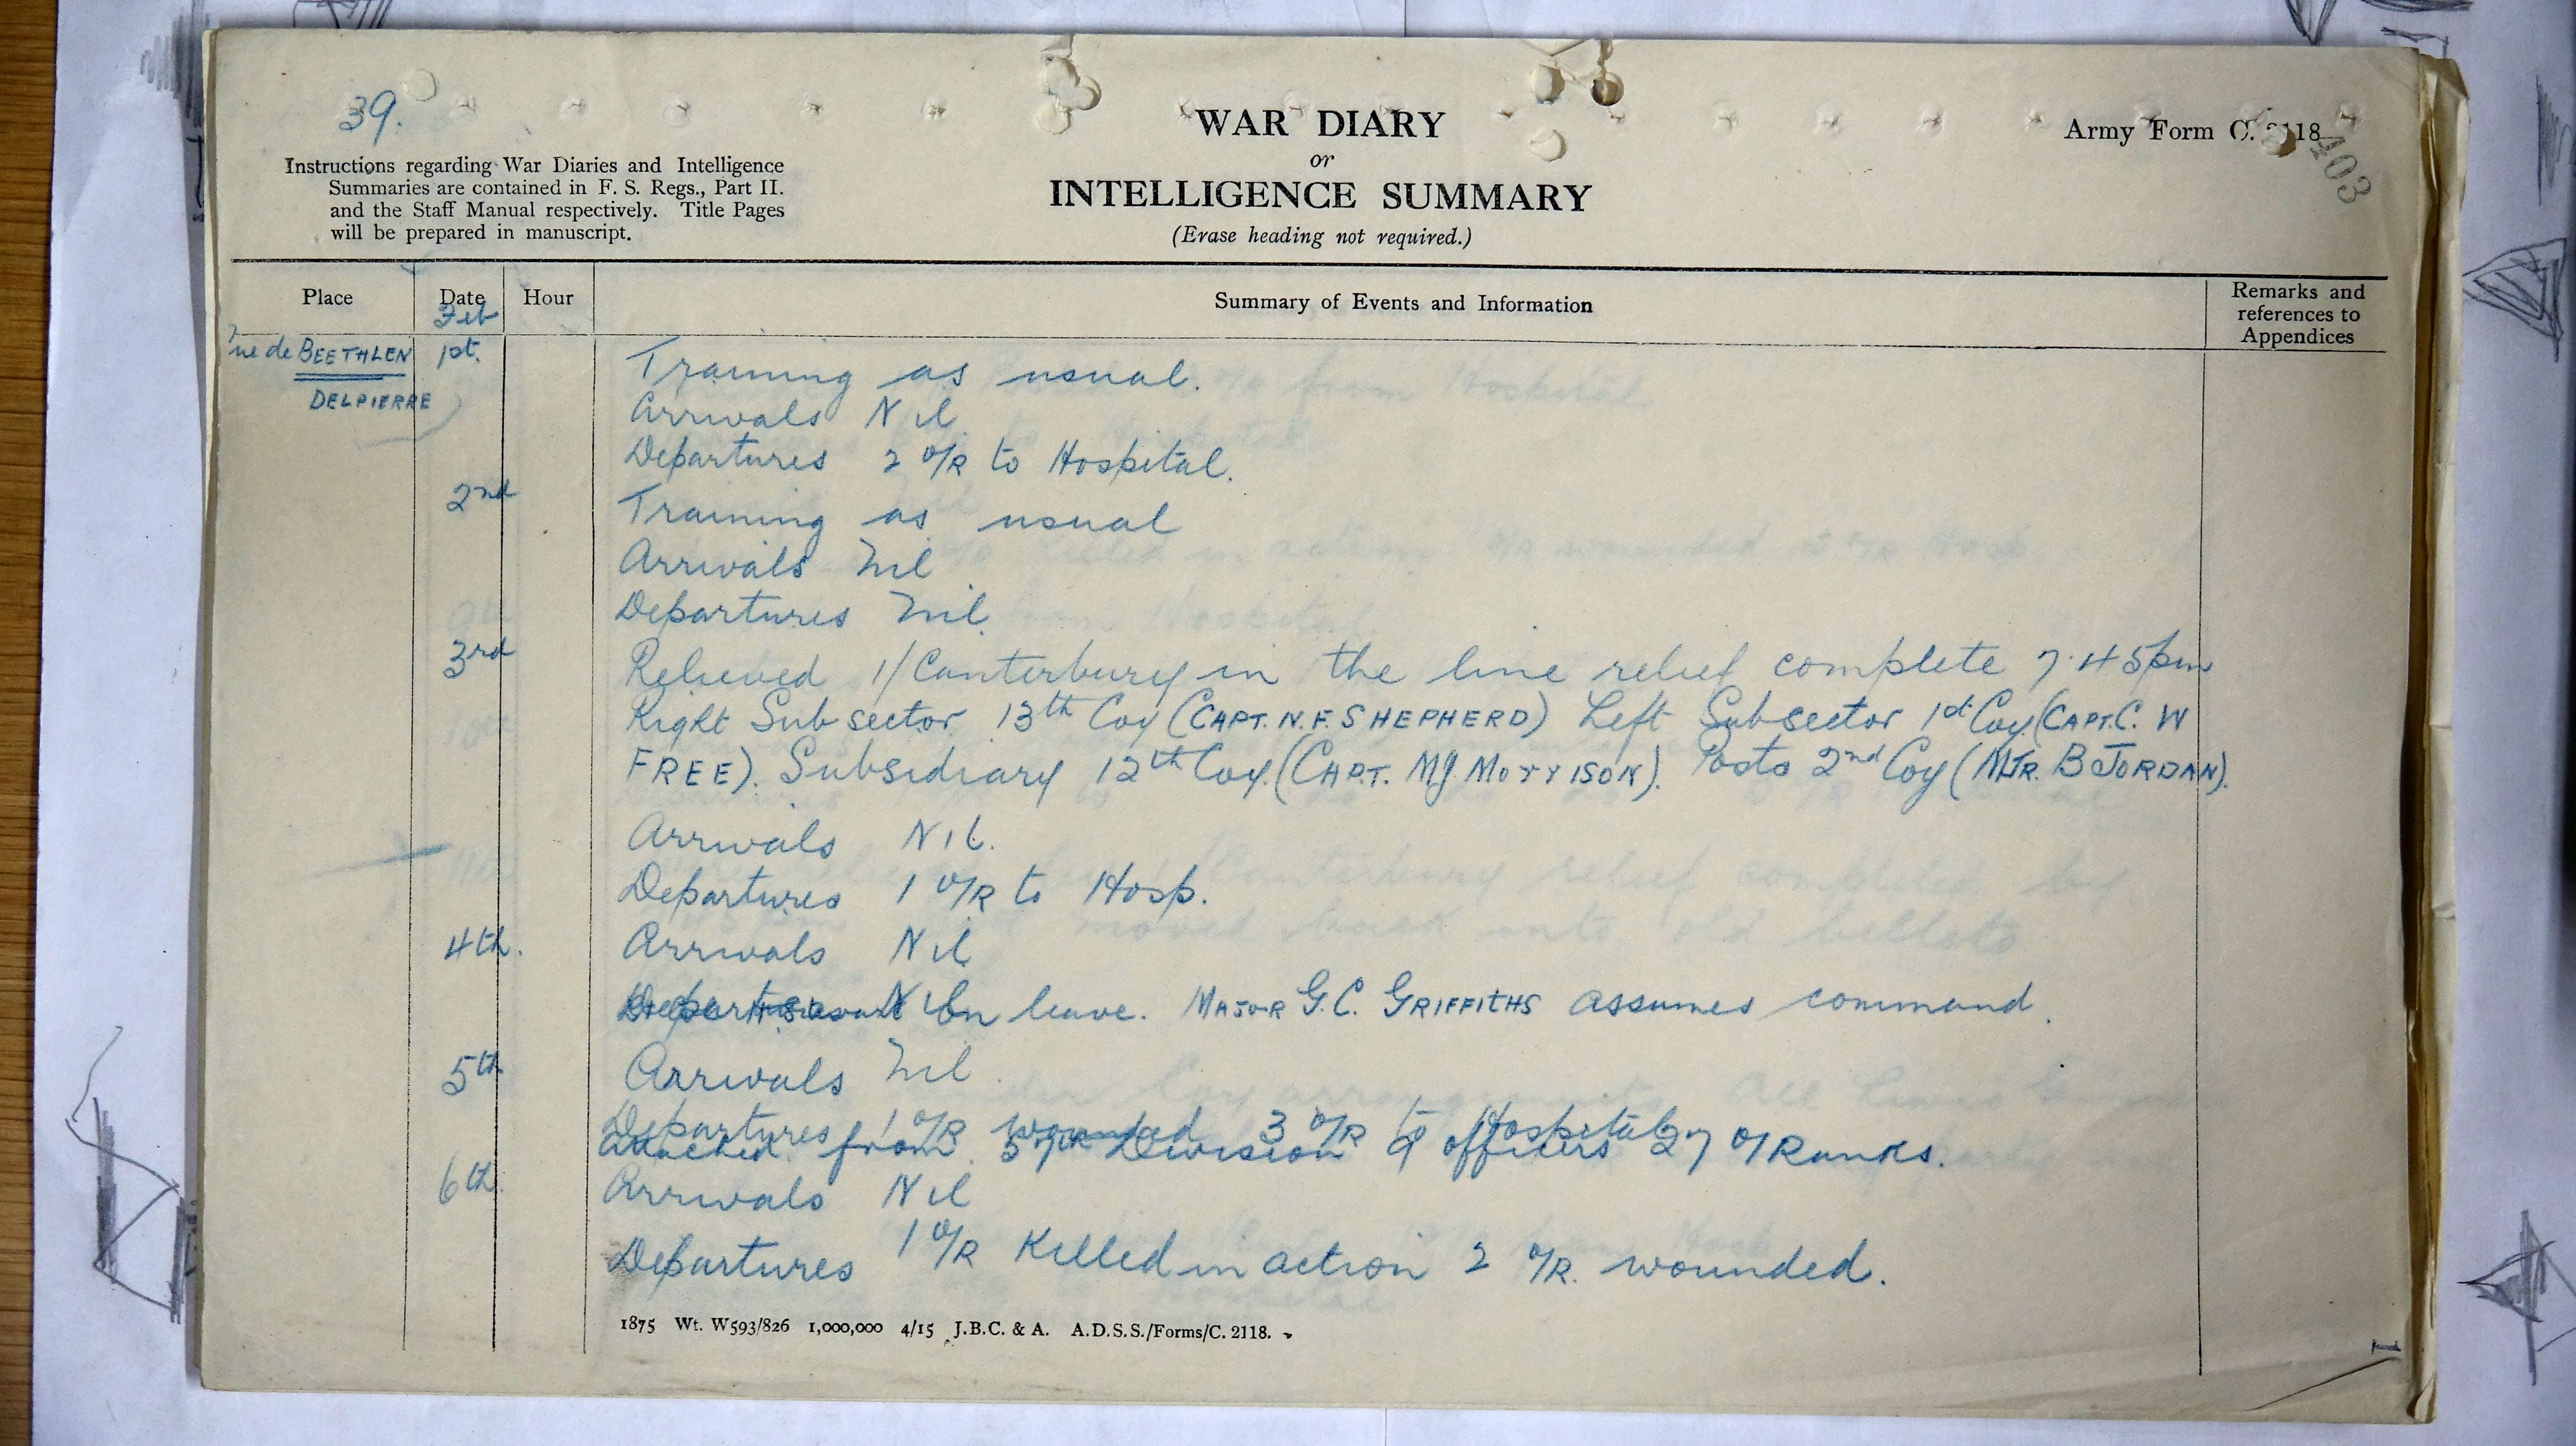 39.
WAR DIARY
or
INTELLIGENCE SUMMARY
(Erase heading not required.)
Army Form C. 2118
403
Instructions regarding War Diaries and Intelligence
Summaries are contained in F. S. Regs., Part II.
and the Staff Manual respectively. Title Pages
will be prepared in manuscript.
Place
Date
Feb
Hour
Summary of Events and Information
Remarks and
references to
Appendices
rue de BEETHLEN
DELPIERRE
1st.
Training as usual.
Arrivals Nil
Departures 2 O/R to Hospital.
2nd
Training as usual
Arrivals Nil
Departures Nil.
3rd
Relieved 1/Canterbury in the line relief complete 7.45pm
Right Sub sector 13th Coy (CAPT. N.F. SHEPHERD) Left Subsector 1st Coy (CAPT. C. W
FREE). Subsidiary 12th Coy. (CAPT. MJ MORRISON). Posts 2nd Coy (MJR. B JORDAN).
Arrivals Nil.
Departures 1 O/R to Hosp.
4th.
Arrivals Nil
Departures Nil on leave. MAJOR G.C. GRIFFITHS assumes command.
5th
Arrivals Nil.
Departures 1 O/R wounded 3 O/R to Hospital
attached from 57th Division 9 officers 27 O/Ranks.
6th.
Arrivals Nil
Departures 1 O/R Killed in action 2 O/R. wounded.
1875 Wt. W593/826 1,000,000 4/15 J.B.C. & A. A.D.S.S./Forms/C. 2118.